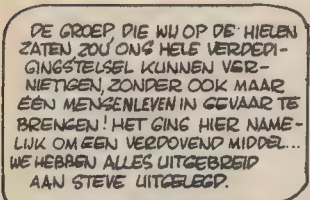 DE GROEP, DIE WIJ OP DE HIELEN
ZATEN, ZOU ONS HELE VERDEDI-
GINGSTELSEL KUNNEN VER-
NIETIGEN, ZONDER OOK MAAR
ÉÉN MENSENLEVEN IN GEVAAR TE
BRENGEN! HET GING HIER NAME-
LIJK OM EEN VERDOVEND MIDDEL...
WE HEBBEN ALLES UITGEBREID
AAN STEVE UITGELEGD.